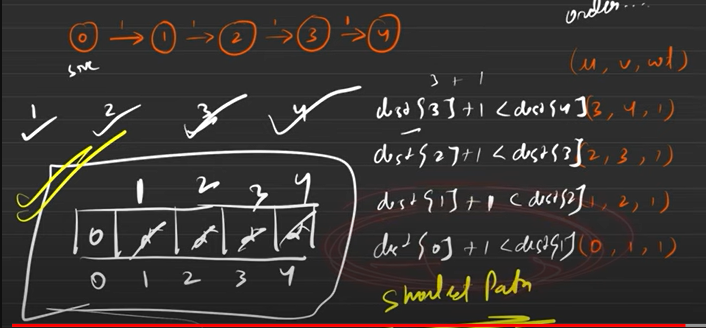 order...
1 1 1 1
0 → 1 → 2 → 3 → 4
src
(u, v, wt)
1 2 3 4
3 + 1
dist[3] + 1 < dist[4] (3, 4, 1)
dist[2] + 1 < dist[3] (2, 3, 1)
dist[1] + 1 < dist[2] (1, 2, 1)
dist[0] + 1 < dist[1] (0, 1, 1)
1 2 3 4
0
0 1 2 3 4
Shortest Path